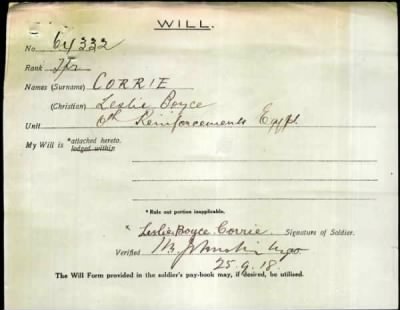 WILL.
No. 64332
Rank Tpr
Names (Surname) CORRIE
(Christian) Leslie Boyce
Unit Reinforcements Egypt
My Will is *attached hereto.
lodged within
* Rule out portion inapplicable.
Leslie Boyce Corrie. Signature of Soldier.
Verified
25.9.18.
The Will Form provided in the soldier's pay-book may, if desired, be utilised.